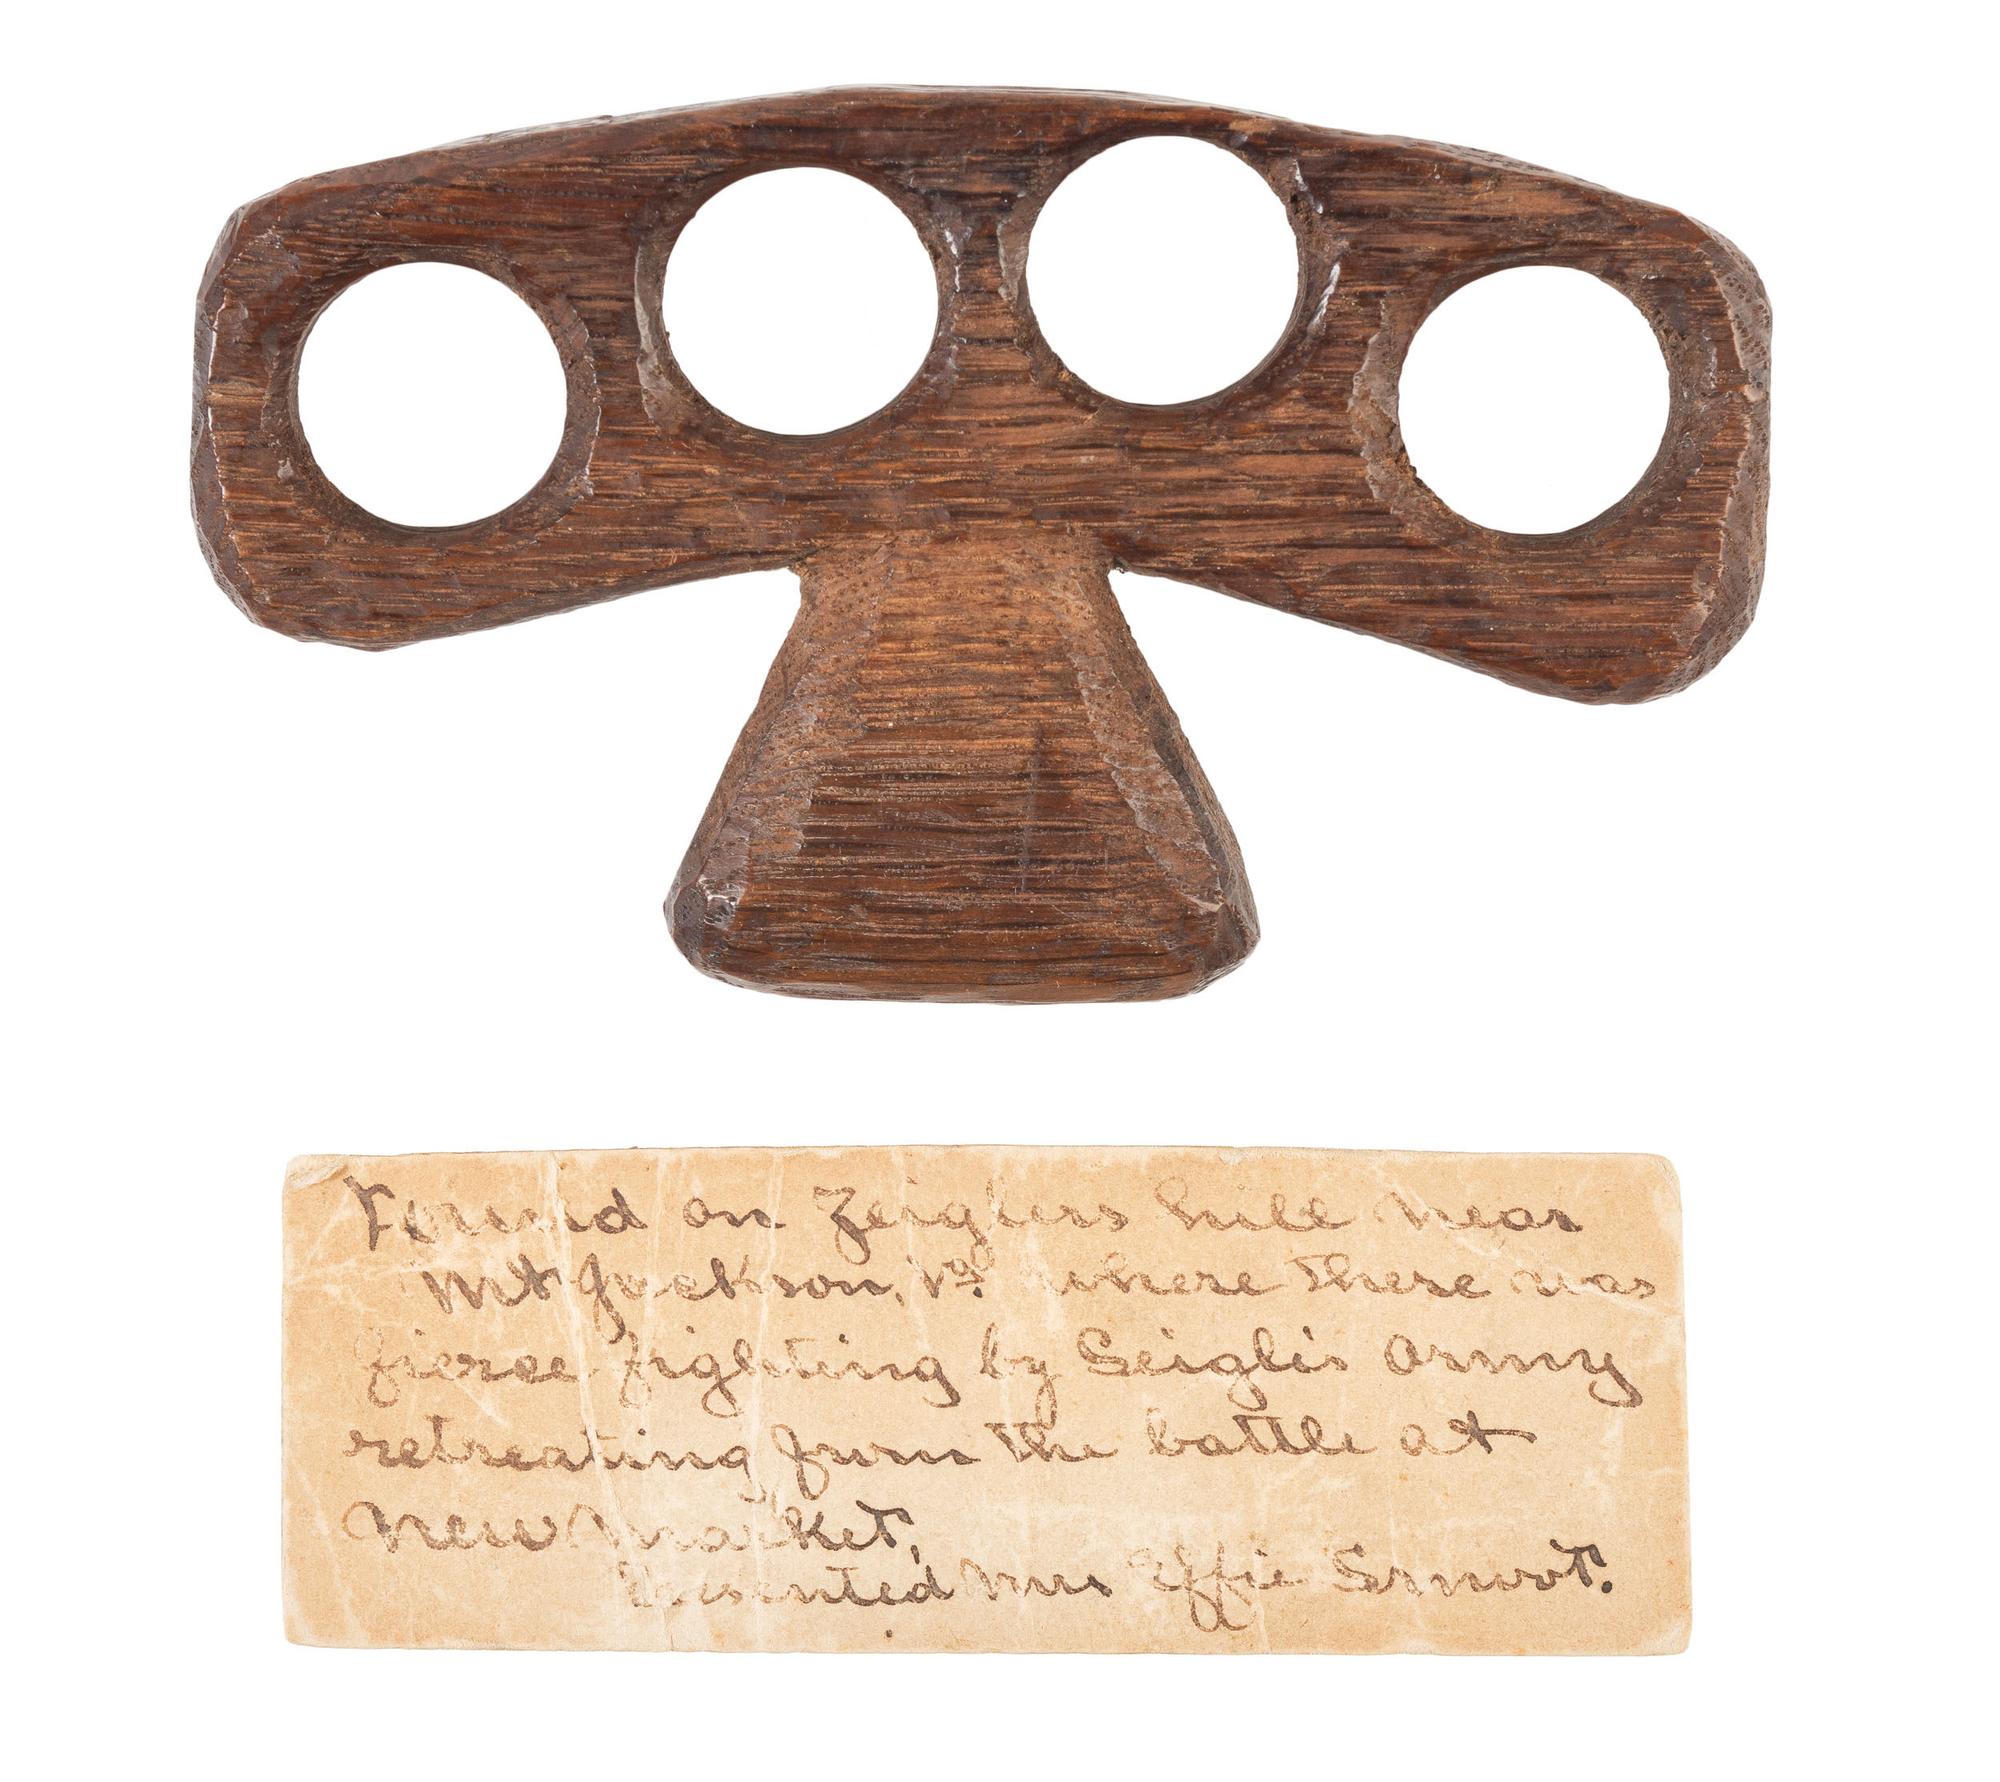 Found on Zeiglers hill near
Mt Jackson, Va. where there was
fierce fighting by Seigli's army
retreating from the battle at
New Market,
Presented Mrs Effie Smoot.